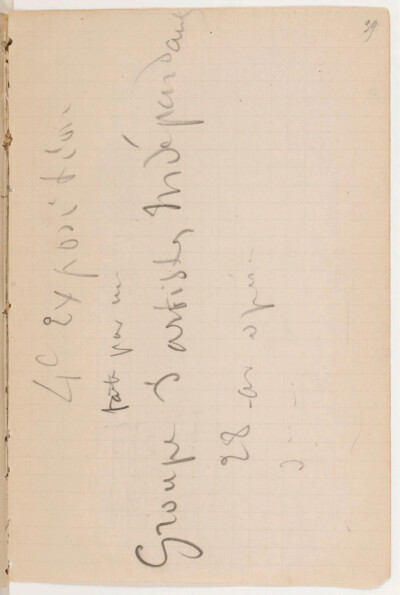 4e exposition
faite par un
Groupe d'artistes Indépendants
28 av
39